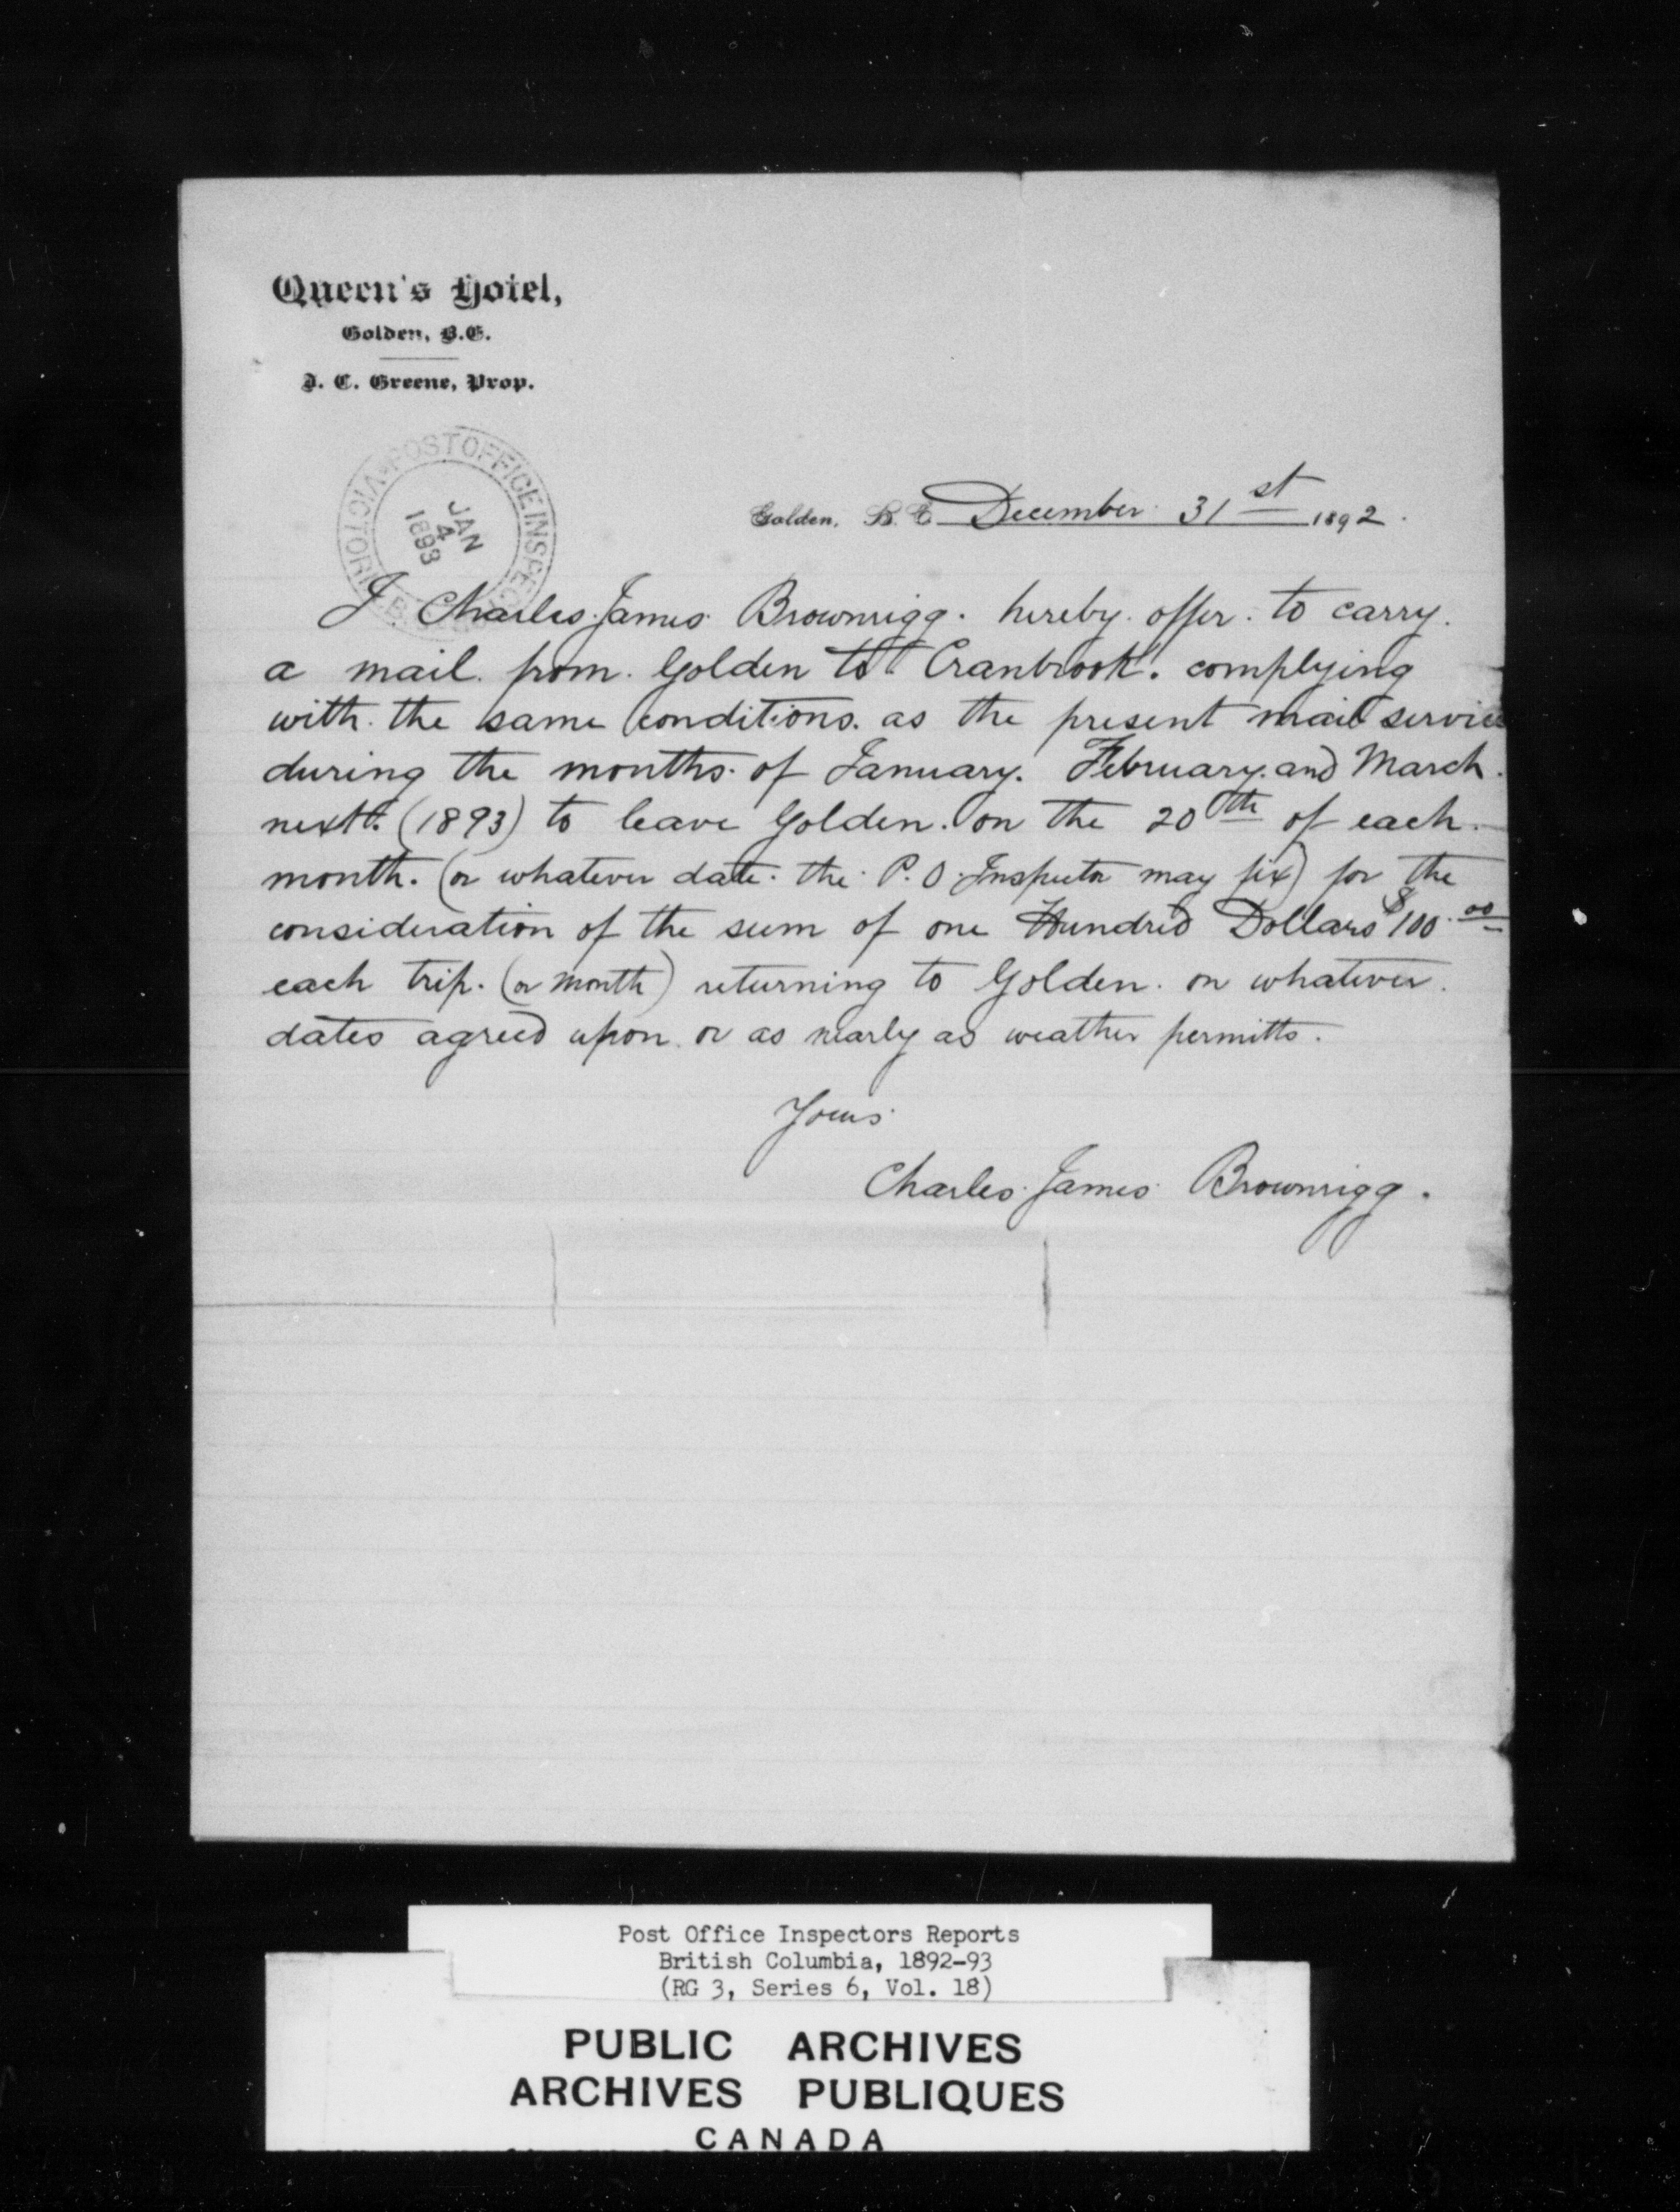 Queen's Hotel,
Golden, B.C.
J. C. Greene, Prop.
VICTORIA POST OFFICE INSPEC
JAN
4
1893
Golden, B.C. December 31st 1892.
I Charles James Brownrigg. hereby offer to carry.
a mail from Golden to Cranbrook. complying
with the same conditions as the present mail service
during the months of January. February and March.
next. (1893) to leave Golden. on the 20th of each
month. (or whatever date the P. O. Inspector may fix) for the
consideration of the sum of one Hundred Dollars $100.00
each trip. (or month) returning to Golden. on whatever.
dates agreed upon. or as nearly as weather permitts.
Yours
Charles James Brownrigg.
Post Office Inspectors Reports
British Columbia, 1892-93
(RG 3, Series 6, Vol. 18)
PUBLIC ARCHIVES
ARCHIVES PUBLIQUES
CANADA